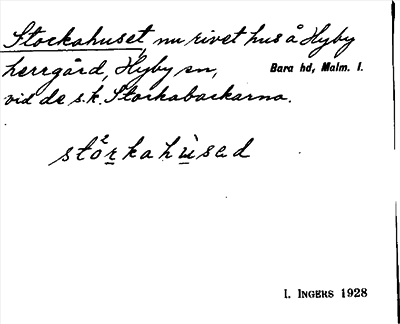 Stockahuset, nu rivet hus å Hyby
herrgård, Hyby sn, Bara hd, Malm. l.
vid de s.k. Stockabackarna.
stå²rkahùsed
I. INGERS 1928